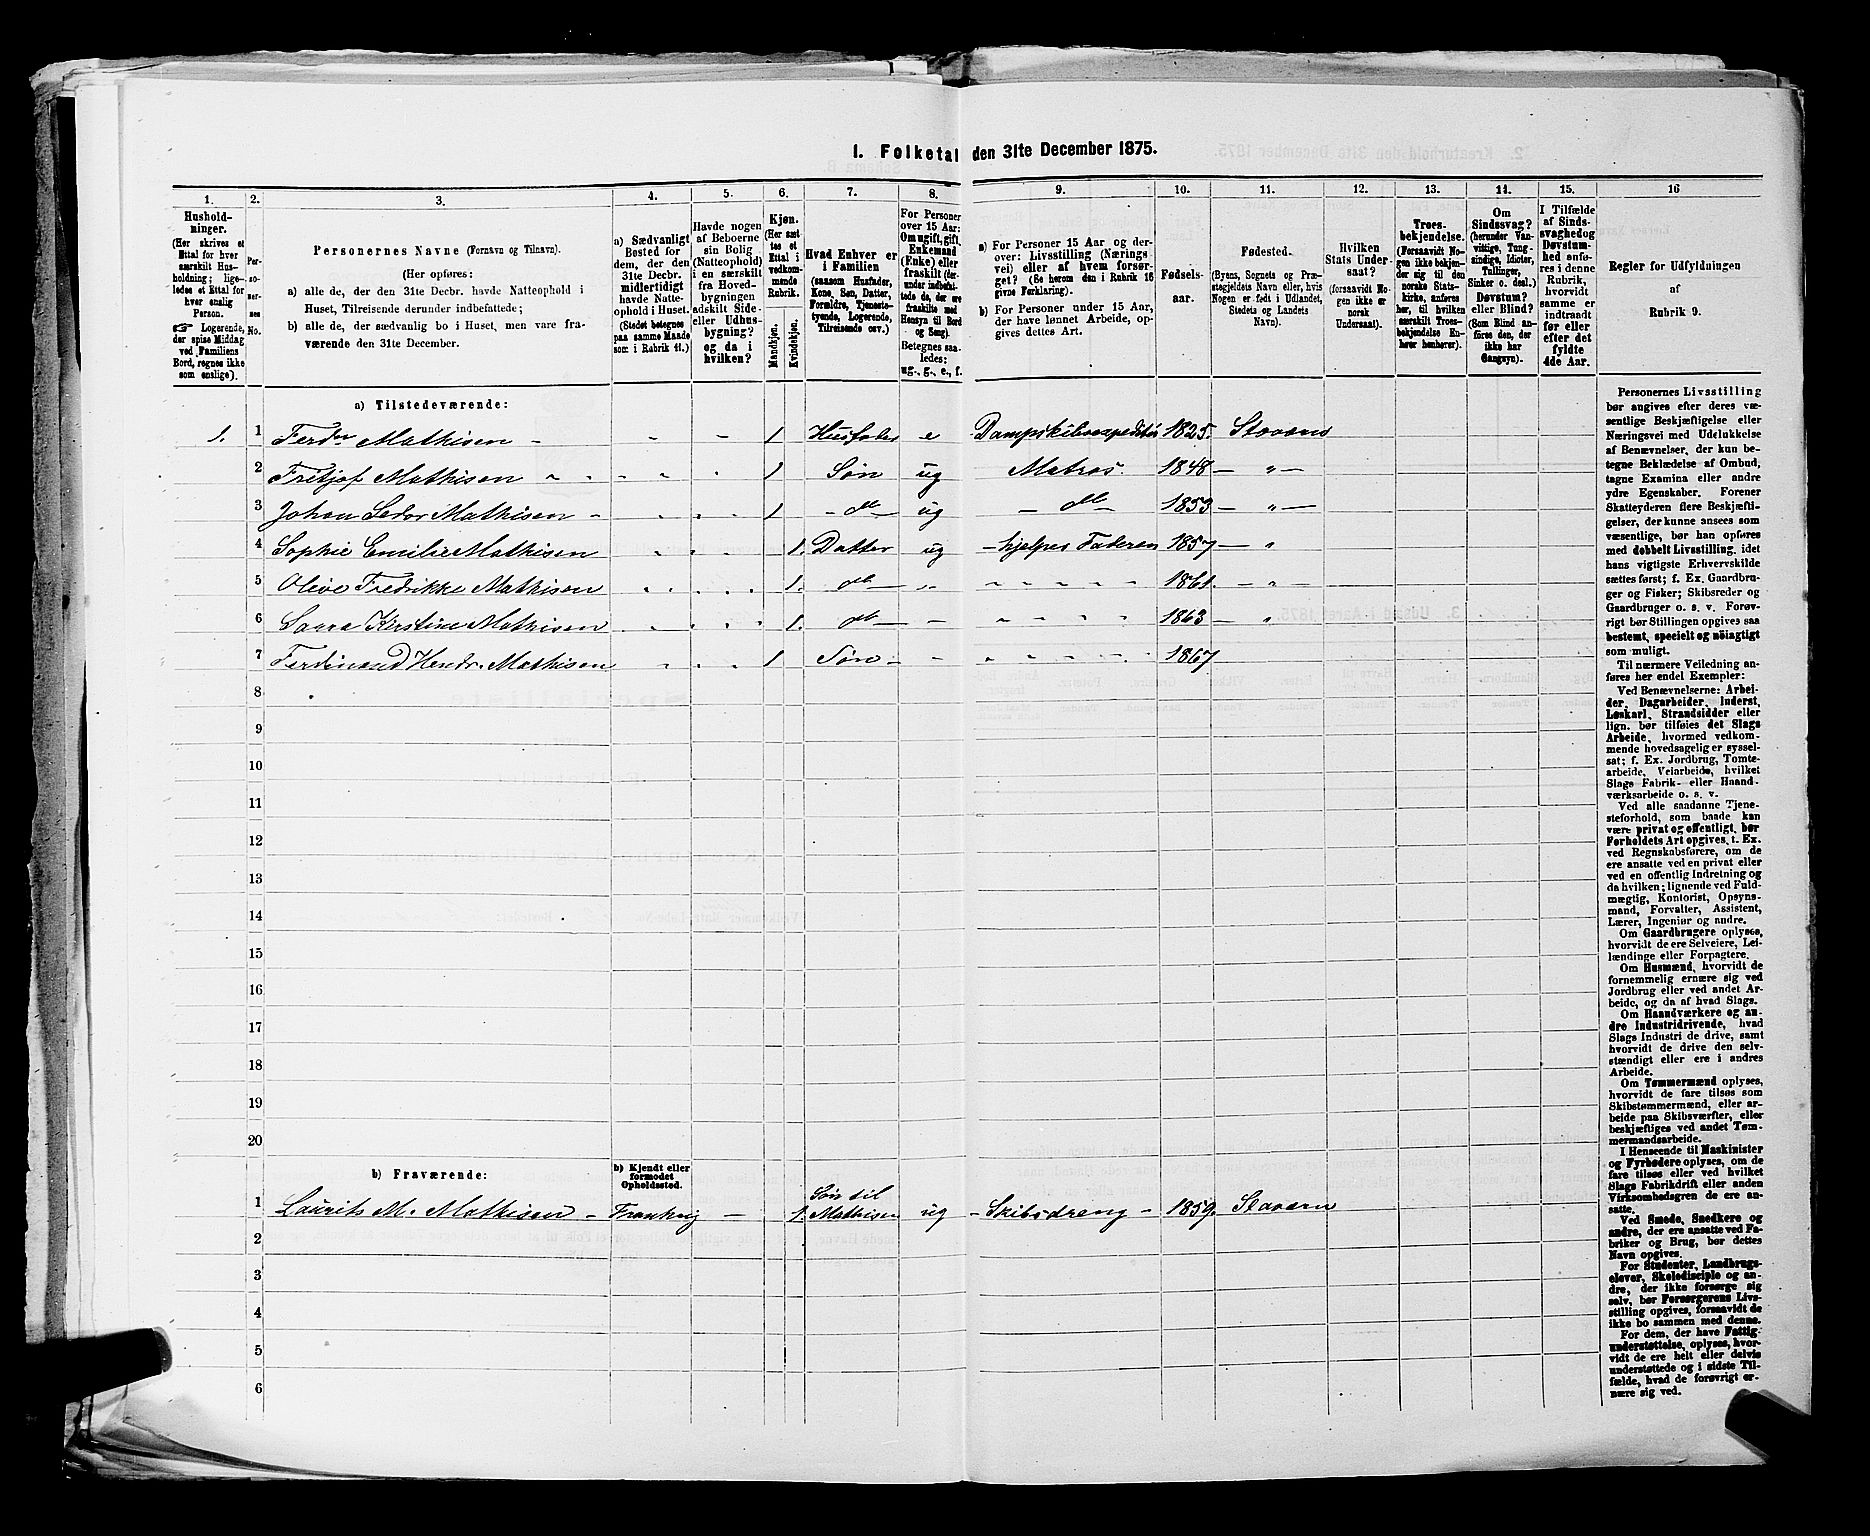 1. Folketal den 31te December 1875.
1. 2. 3. 4. 5. 6. 7. 8. 9. 10. 11. 12. 13. 14. 15. 16
Hushold-
ninger.
(Her skrives et
Ettal for hver
særskilt Hus-
holdning; lige-
ledes et Ettal for
hver enslig
Person.
☞ Logerende,
der spise Middag
ved Familiens
Bord, regnes ikke
som enslige).
Per-
so-
ner-
nes
No.
Personernes Navne (Fornavn og Tilnavn).
(Her opføres:
a) alle de, der den 31te Decbr. havde Natteophold i
Huset, Tilreisende derunder indbefattede;
b) alle de, der sædvanlig bo i Huset, men vare fra-
værende den 31te December.
a) Sædvanligt
Bosted for
dem, der den
31te Decbr.
midlertidigt
havde Natte-
ophold i Huset.
(Stedet betegnes
paa samme Maade
som i Rubrik 11.)
Havde nogen
af Beboerne
sin Bolig
(Natteophold)
i en særskilt
fra Hoved-
bygningen
adskilt Side-
eller Udhus-
bygning?
og da i
hvilken?
Kjøn.
(Her sæt-
tes et
Ettal i
vedkom-
mende
Rubrik.
Mandkjøn.
Kvindekjøn.
Hvad Enhver er
i Familien
(saasom Husfader,
Kone, Søn, Datter,
Forældre, Tjeneste-
tyende, Logerende,
Tilreisende osv.)
For Personer
over 15 Aar:
Om ugift, gift,
Enkemand
(Enke) eller
fraskilt (der-
under indbefat-
tede de, der ere
fraskilte med
Hensyn til Bord
og Seng).
Betegnes saa-
ledes:
ug., g., e., f.
a) For Personer 15 Aar og der-
over: Livsstilling (Nærings-
vei) eller af hvem forsør-
get? (Se herom den i Rubrik 16
givne Forklaring).
b) For Personer under 15 Aar,
der have lønnet Arbeide, op-
gives dettes Art.
Fødsels-
aar.
Fødested.
(Byens, Sognets og Præ-
stegjeldets Navn eller, hvis
Nogen er født i Udlandet,
Stedets og Landets
Navn).
Hvilken
Stats Under-
saat?
(forsaavidt No-
gen ikke er
norsk
Undersaat).
Troes-
bekjendelse.
(Forsaavidt No-
gen ikke bekjen-
der sig til den
norske Stats-
kirke, anføres
her, til hvilken
særskilt Troes-
bekjendelse En-
hver henhører).
Om
Sindssvag?
(herunder Van-
vittige, Tung-
sindige, Idioter,
Tullinger,
Sinker o. desl.)
Døvstum?
eller Blind?
(Som Blind an-
føres den, der
ikke har
Gangsyn).
I Tilfælde
af Sinds-
svaghed og
Døvstum-
hed anfø-
res i denne
Rubrik,
hvorvidt
samme er
indtraadt
før eller
efter det
fyldte
4de Aar.
Regler for Udfyldningen
af
Rubrik 9.
a) Tilstedeværende:
1. 1 Ferdn Mathisen - 1 Husfader e Dampskibsexpeditør 1825. Stavern
2 Fritjof Mathisen 1 Søn ug Matros. 1848 — " —
3 Johan Mathisen - 1 do ug - do 1853 — " —
4 Sophie Emilie Mathisen 1. Datter ug - hjelper Faderen 1857 — "
5 Olive Fredrikke Mathisen 1. do 1861. — " —
6 Kirstine Mathisen 1. do 1863 — "
7 Ferdinand Hendr. Mathisen 1 Søn - 1867
8
9
10
11
12
13
14
15
16
17
18
19
20
b) Fraværende:
b) Kjendt eller
formodet
Opholdssted.
Søn til
1 Laurits M. Mathisen - 1. Mathisen ug - Skibsdreng - 1859. Stavern
2
3
4
5
6
Personernes Livsstilling
bør angives efter deres væ-
sentlige Beskjæftigelse eller
Næringsvei med Udelukkelse
af Benævnelser, der kun be-
tegne Beklædelse af Ombud,
tagne Examina eller andre
ydre Egenskaber. Forener
Skatteyderen flere Beskjæfti-
gelser, der kunne ansees som
væsentlige, bør han opføres
med dobbelt Livsstilling, idet
hans vigtigste Erhvervskilde
sættes først; f. Ex. Gaardbru-
ger og Fisker; Skibsreder og
Gaardbruger o. s. v. Forøv-
rigt bør Stillingen opgives saa
bestemt, specielt og nøiagtigt
som muligt.
Til nærmere Veiledning an-
føres her endel Exempler:
Ved Benævnelserne: Arbei-
der, Dagarbeider, Inderst,
Løskarl, Strandsidder eller
lign. bør tilføies det Slags
Arbeide, hvormed vedkom-
mende hovedsagelig er syssel-
sat; f. Ex. Jordbrug, Tomte-
arbeide, Veiarbeide, hvilket
Slags Fabrik- eller Haand-
værksarbeide o. s. v.
Ved alle saadanne Tjene-
steforhold, som baade kan
være privat og offentligt, bør
Forholdets Art opgives, t. Ex.
ved Regnskabsførere, om de
ere ansatte ved en privat eller
ved en offentlig Indretning og
da hvilken; lignende ved Fuld-
mægtig, Kontorist, Opsyns-
mand, Forvalter, Assistent,
Lærer, Ingeniør og andre.
Om Gaardbrugere oplyses,
hvorvidt de ere Selveiere, Lei-
lændinge eller Forpagtere.
Om Husmænd, hvorvidt de
fornemmelig ernære sig ved
Jordbrug eller ved andet Ar-
beide, og da af hvad Slags.
Om Haandværkere og an-
dre Industridrivende, hvad
Slags Industri de drive, samt
hvorvidt de drive den selv-
stændigt eller ere i andres
Arbeide.
Om Tømmermænd oplyses,
hvorvidt de fare tilsøs som
Skibstømmermænd, eller ar-
beide paa Skibsværfter, eller
beskjæftiges ved andet Tøm-
mermandsarbeide.
I Henseende til Maskinister
og Fyrbødere oplyses, om de
fare tilsøs eller ved hvilket
Slags Fabrikdrift eller anden
Virksomhedsgren de ere an-
satte.
Ved Smede, Snedkere og
andre, der ere ansatte ved Fa-
briker og Brug, bør dettes
Navn opgives.
For Studenter, Landbrugs-
elever, Skoledisciple og an-
dre, der ikke forsørge sig
selv, bør Forsørgerens Livs-
stilling opgives, forsaavidt de
ikke bo sammen med denne.
For dem, der have Fattig-
understøttelse, oplyses, hvor-
vidt de ere helt eller delvis
understøttede og i sidste Til-
fælde, hvad de forøvrigt er-
nære sig ved.